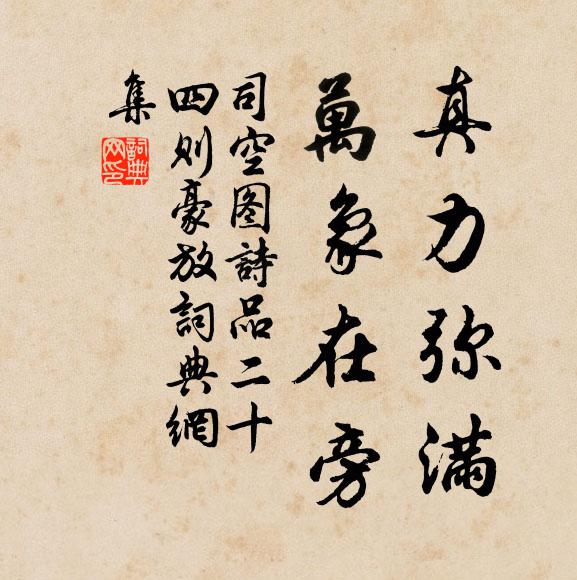 真力弥满
萬象在旁
司空图詩品二十
四则豪放詞典網
集
詞典
网印